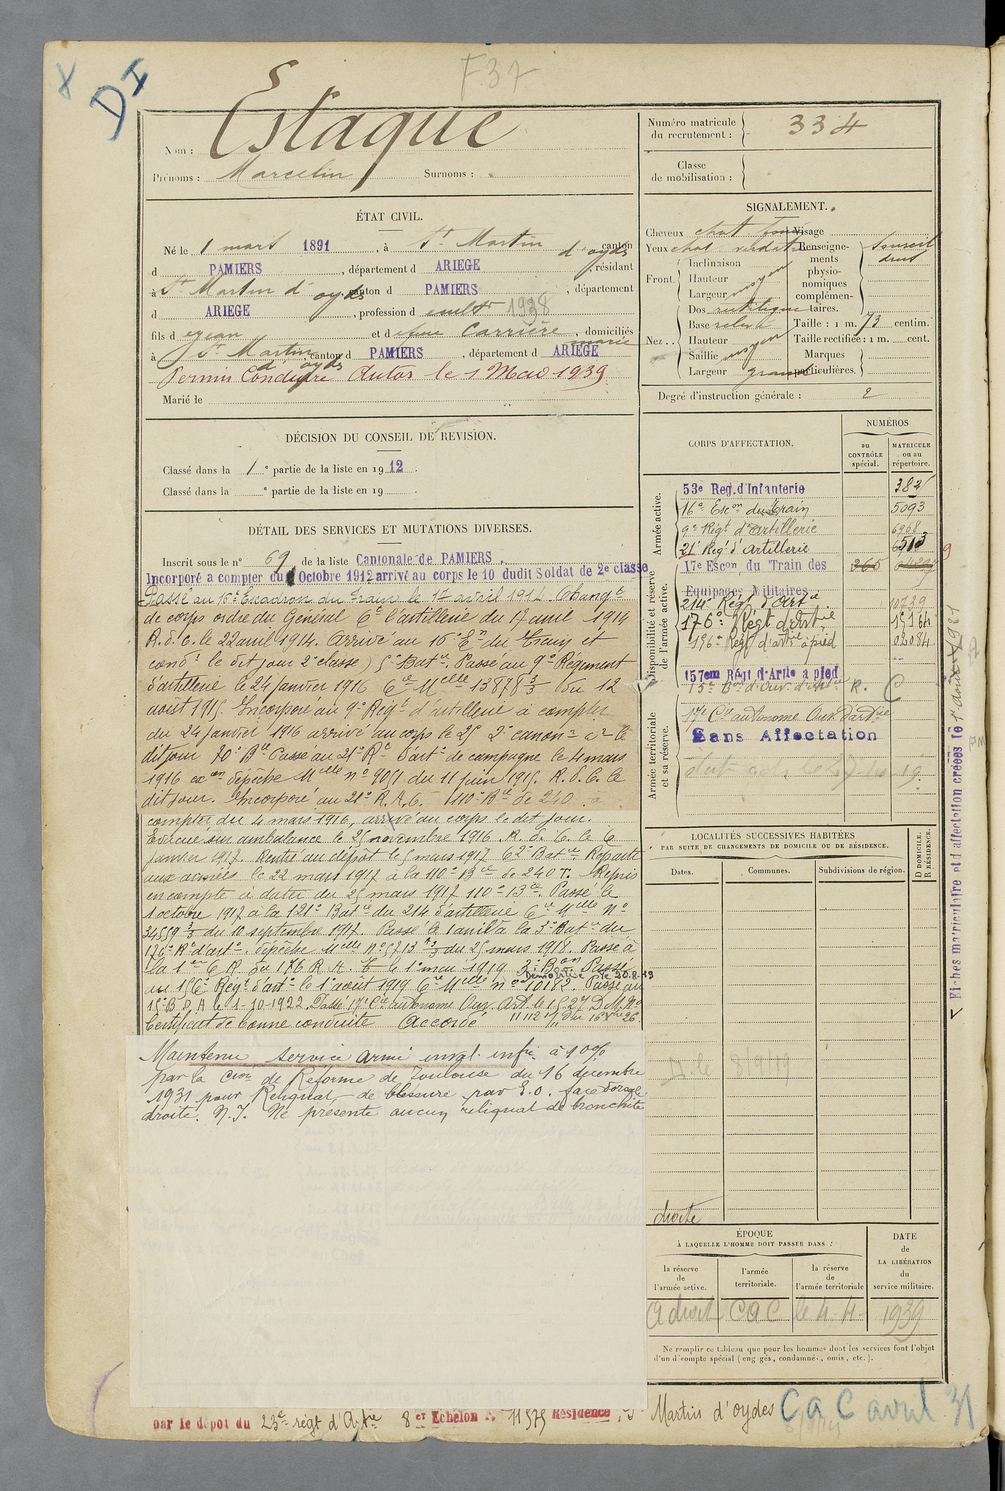 F37
DI
Nom : Estaque
Prénoms : Marcelin Surnoms :
Numéro matricule du recrutement : 334
Classe de mobilisation :
ÉTAT CIVIL.
Né le 1 mars 1891, à St Martin d'oyds canton
d PAMIERS, département d ARIEGE, résidant
à St Martin d'oyds canton d PAMIERS, département
d ARIEGE, profession de cultr 1938
fils d et d Carrière, domiciliés
à St Martin d'oyds canton d PAMIERS, département d ARIEGE
Permis Conduire Autos le 1 Mars 1939
Marié le
DÉCISION DU CONSEIL DE REVISION.
Classé dans la 1e partie de la liste en 1912.
Classé dans la e partie de la liste en 19
DÉTAIL DES SERVICES ET MUTATIONS DIVERSES.
Inscrit sous le n° 69 de la liste Cantonale de PAMIERS.
Incorporé à compter du Octobre 1912 arrivé au corps le 10 dudit Soldat de 2e classe
Passé au 16e Escadron du train le 17 avril 1914. Changt
de corps ordre du Général Ct l'artillerie du 17 avril 1914
R.d.C. le 22 avril 1914. Arrivé au 16e En du Train et
cond. le dit jour 2e classe) Passé au 9e Régiment
d'artillerie le 24 janvier 1916 Cre Melle 13878 3/3 du 12
août 1915. Incorporé au 9e Régt d'artillerie à compter
du 24 janvier 1916 arrivé au corps le 25 2e canonr
dit jour Passé au 21e Rt d'artie de campagne le 4 mars
1916 exon dépêche Melle n° 9051 du 11 juin 1915. R.d.C. le
dit jour. Incorporé au 21e R.A.C. 110e Bie de 240 à
compter du 4 mars 1916, arrivé au corps le dit jour.
Évacué sur ambulance le 25 novembre 1916. R.d.C. le 6
janvier 1917. Rentré au dépôt le 5 mars 1917 62e Batie Reparti
aux armées le 22 mars 1917 à la 110e Bie de 240 T. Repris
en compte à dater du 25 mars 1917 110e Bie. Passé le
1 octobre 1917 à la 121e Batie du 214 d'artillerie Cre Melle n°
34559 3/3 du 10 septembre 1917. Passé le 1 avril à la 3e Batie du
176e Rt d'artie. Dépêche Melle n° 5713 du 25 mars 1918. Passé à
la 1re C.R. du 176 R.A.T. le 1er mai 1919 Passé
au 156e Régt d'artie le 1er août 1919 Cre Melle n° 10182. Passé au
Démobilisé le 20.8.19
15e B.O.A. le 1-10-1922. Passé 17e Cie autonome Ouv. d'Art. le 1.5.27 D.M. n°
Certificat de bonne conduite Accordé
Maintenu service armé inval. infre à 10%
par la Cion de Réforme de Toulouse du 16 décembre
1931 pour Reliquat de blessure par E.O. face dorsale
droite. N.I. Ne présente aucun reliquat de bronchite
droite
par le dépot du 23e régt d'Artie 8er Echelon N. 11575 Résidence St Martin d'oydes
CaC avril 31
SIGNALEMENT.
Cheveux chat foncé Visage
Yeux chat verdatre
Front. Inclinaison
Hauteur moyen
Largeur
Nez. Dos rectiligne
Base
Hauteur
Saillie moyen
Largeur grand
Renseignements physionomiques complémentaires. Sourcil droit
Taille : 1 m. 73 centim.
Taille rectifiée : 1 m. cent.
Marques particulières.
Degré d'instruction générale : 2
CORPS D'AFFECTATION.
NUMÉROS
au CONTRÔLE spécial.
MATRICULE ou au répertoire.
Armée active.
53e Reg. d'Infanterie
16e Escon du train 5093
9e Régt d'artillerie 6968
21e Régt d'artillerie
Disponibilité et réserve de l'armée active.
17e Escon du Train des
Equipages Militaires
214e Régt d'Artie 10739
176e Régt d'artie 15164
196e Régt d'artie à pied 02084
157em Régt d'Artie à pied
15e Bon d'Ouv. d'artie R. C
Armée territoriale et sa réserve.
17e Cie autonome Ouv. d'artie
Sans Affectation
LOCALITÉS SUCCESSIVES HABITÉES
PAR SUITE DE CHANGEMENTS DE DOMICILE OU DE RÉSIDENCE.
Dates. Communes. Subdivisions de région. D DOMICILE. R RÉSIDENCE.
D. le 8/9/19
ÉPOQUE
À LAQUELLE L'HOMME DOIT PASSER DANS :
la réserve de l'armée active.
l'armée territoriale.
la réserve de l'armée territoriale
DATE de LA LIBÉRATION du service militaire.
A droit CAC le 4-4-1939
Ne remplir ce tableau que pour les hommes dont les services font l'objet
d'un décompte spécial (engagés, condamnés, omis, etc.).
Fiches matriculaire et d'affectation créées le 1er Août 1931